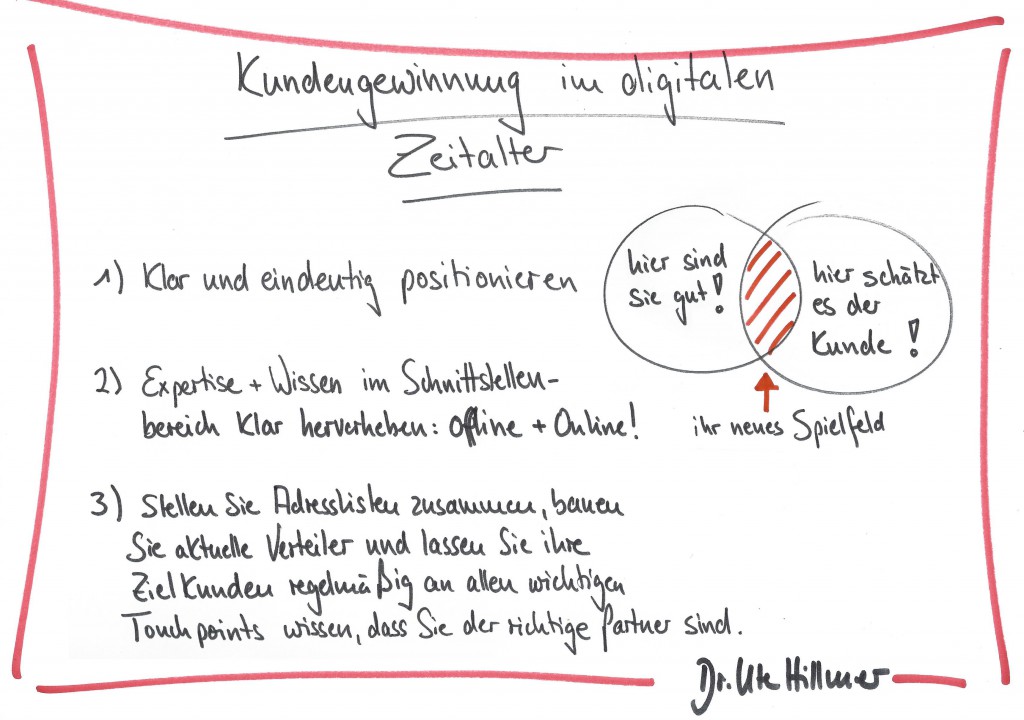 Kundengewinnung im digitalen
Zeitalter
1) Klar und eindeutig positionieren
hier sind
sie gut!
hier schätzt
es der
Kunde!
2) Expertise + Wissen im Schnittstellen-
bereich klar hervorheben: Offline + Online!
ihr neues Spielfeld
3) Stellen Sie Adresslisten zusammen, bauen
Sie aktuelle Verteiler und lassen Sie ihre
Zielkunden regelmäßig an allen wichtigen
Touchpoints wissen, dass Sie der richtige Partner sind.
Dr. Ute Hillmer